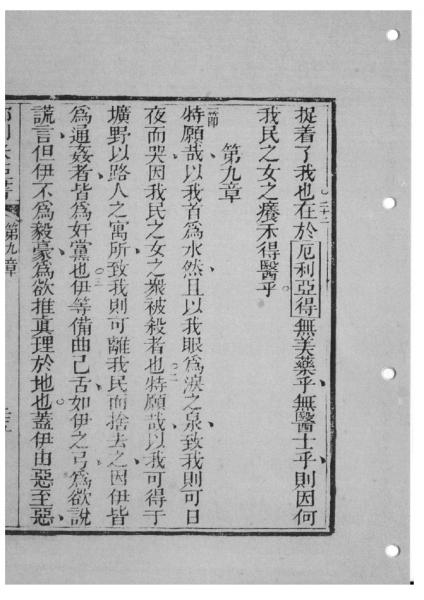 捉着了我也二十二在於厄利亞得無美藥乎無醫士乎則因何
我民之女之癢未得醫乎
第九章
一節特願哉以我首爲水然且以我眼爲淚之泉致我則可日
夜而哭因我民之女之衆被殺者也二特願哉以我可得于
壙野以路人之寓所致我則可離我民而捨去之因伊皆
爲通姦者皆爲奸黨也三伊等備曲己舌如伊之弓爲欲說
謊言但伊不爲毅豪爲欲推眞理於地也蓋伊由惡至惡
第九章